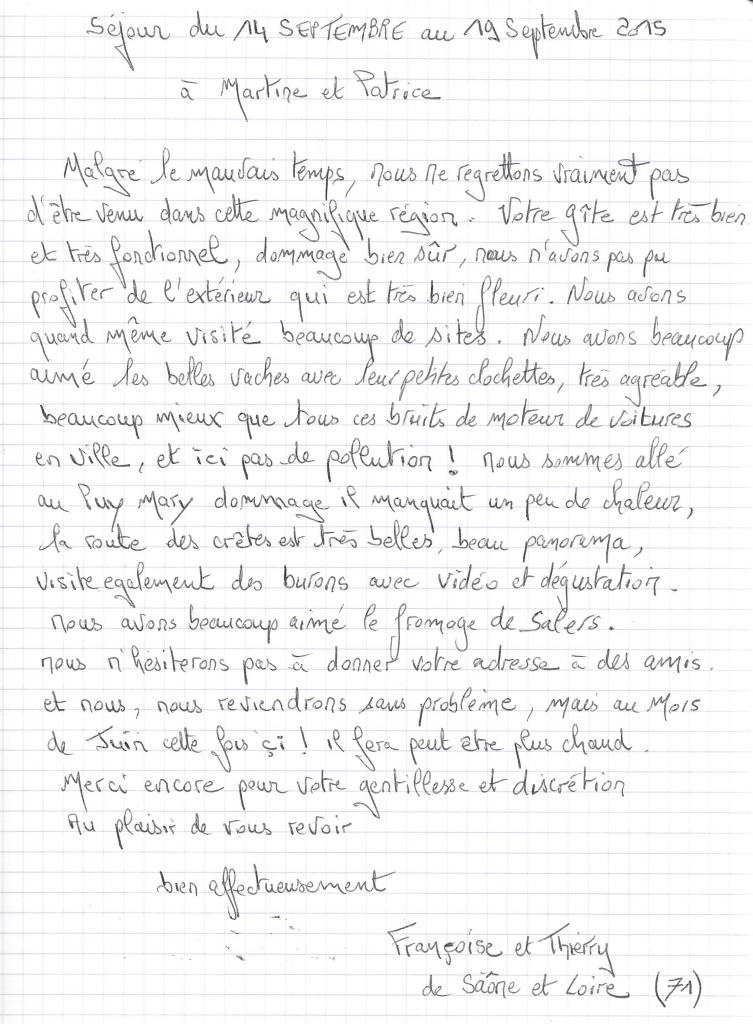 Séjour du 14 SEPTEMBRE au 19 Septembre 2015
à Martine et Patrice
Malgré le mauvais temps, nous ne regrettons vraiment pas
d'être venu dans cette magnifique région. Votre gîte est très bien
et très fonctionnel, dommage bien sûr, nous n'avons pas pu
profiter de l'extérieur qui est très bien fleuri. Nous avons
quand même visité beaucoup de sites. Nous avons beaucoup
aimé les belles vaches avec leur petites clochettes, très agréable,
beaucoup mieux que tous ces bruits de moteur de voitures
en ville, et ici pas de pollution ! nous sommes allé
au Puy Mary dommage il manquait un peu de chaleur,
la route des crêtes est très belles, beau panorama,
visite egalement des burons avec vidéo et dégustation.
nous avons beaucoup aimé le fromage de Salers.
nous n'hésiterons pas à donner votre adresse à des amis.
et nous, nous reviendrons sans problème, mais au Mois
de Juin cette fois çi ! il fera peut être plus chaud.
Merci encore pour votre gentillesse et discrétion
Au plaisir de vous revoir
bien affectueusement
Françoise et Thierry
de Saône et Loire (71)